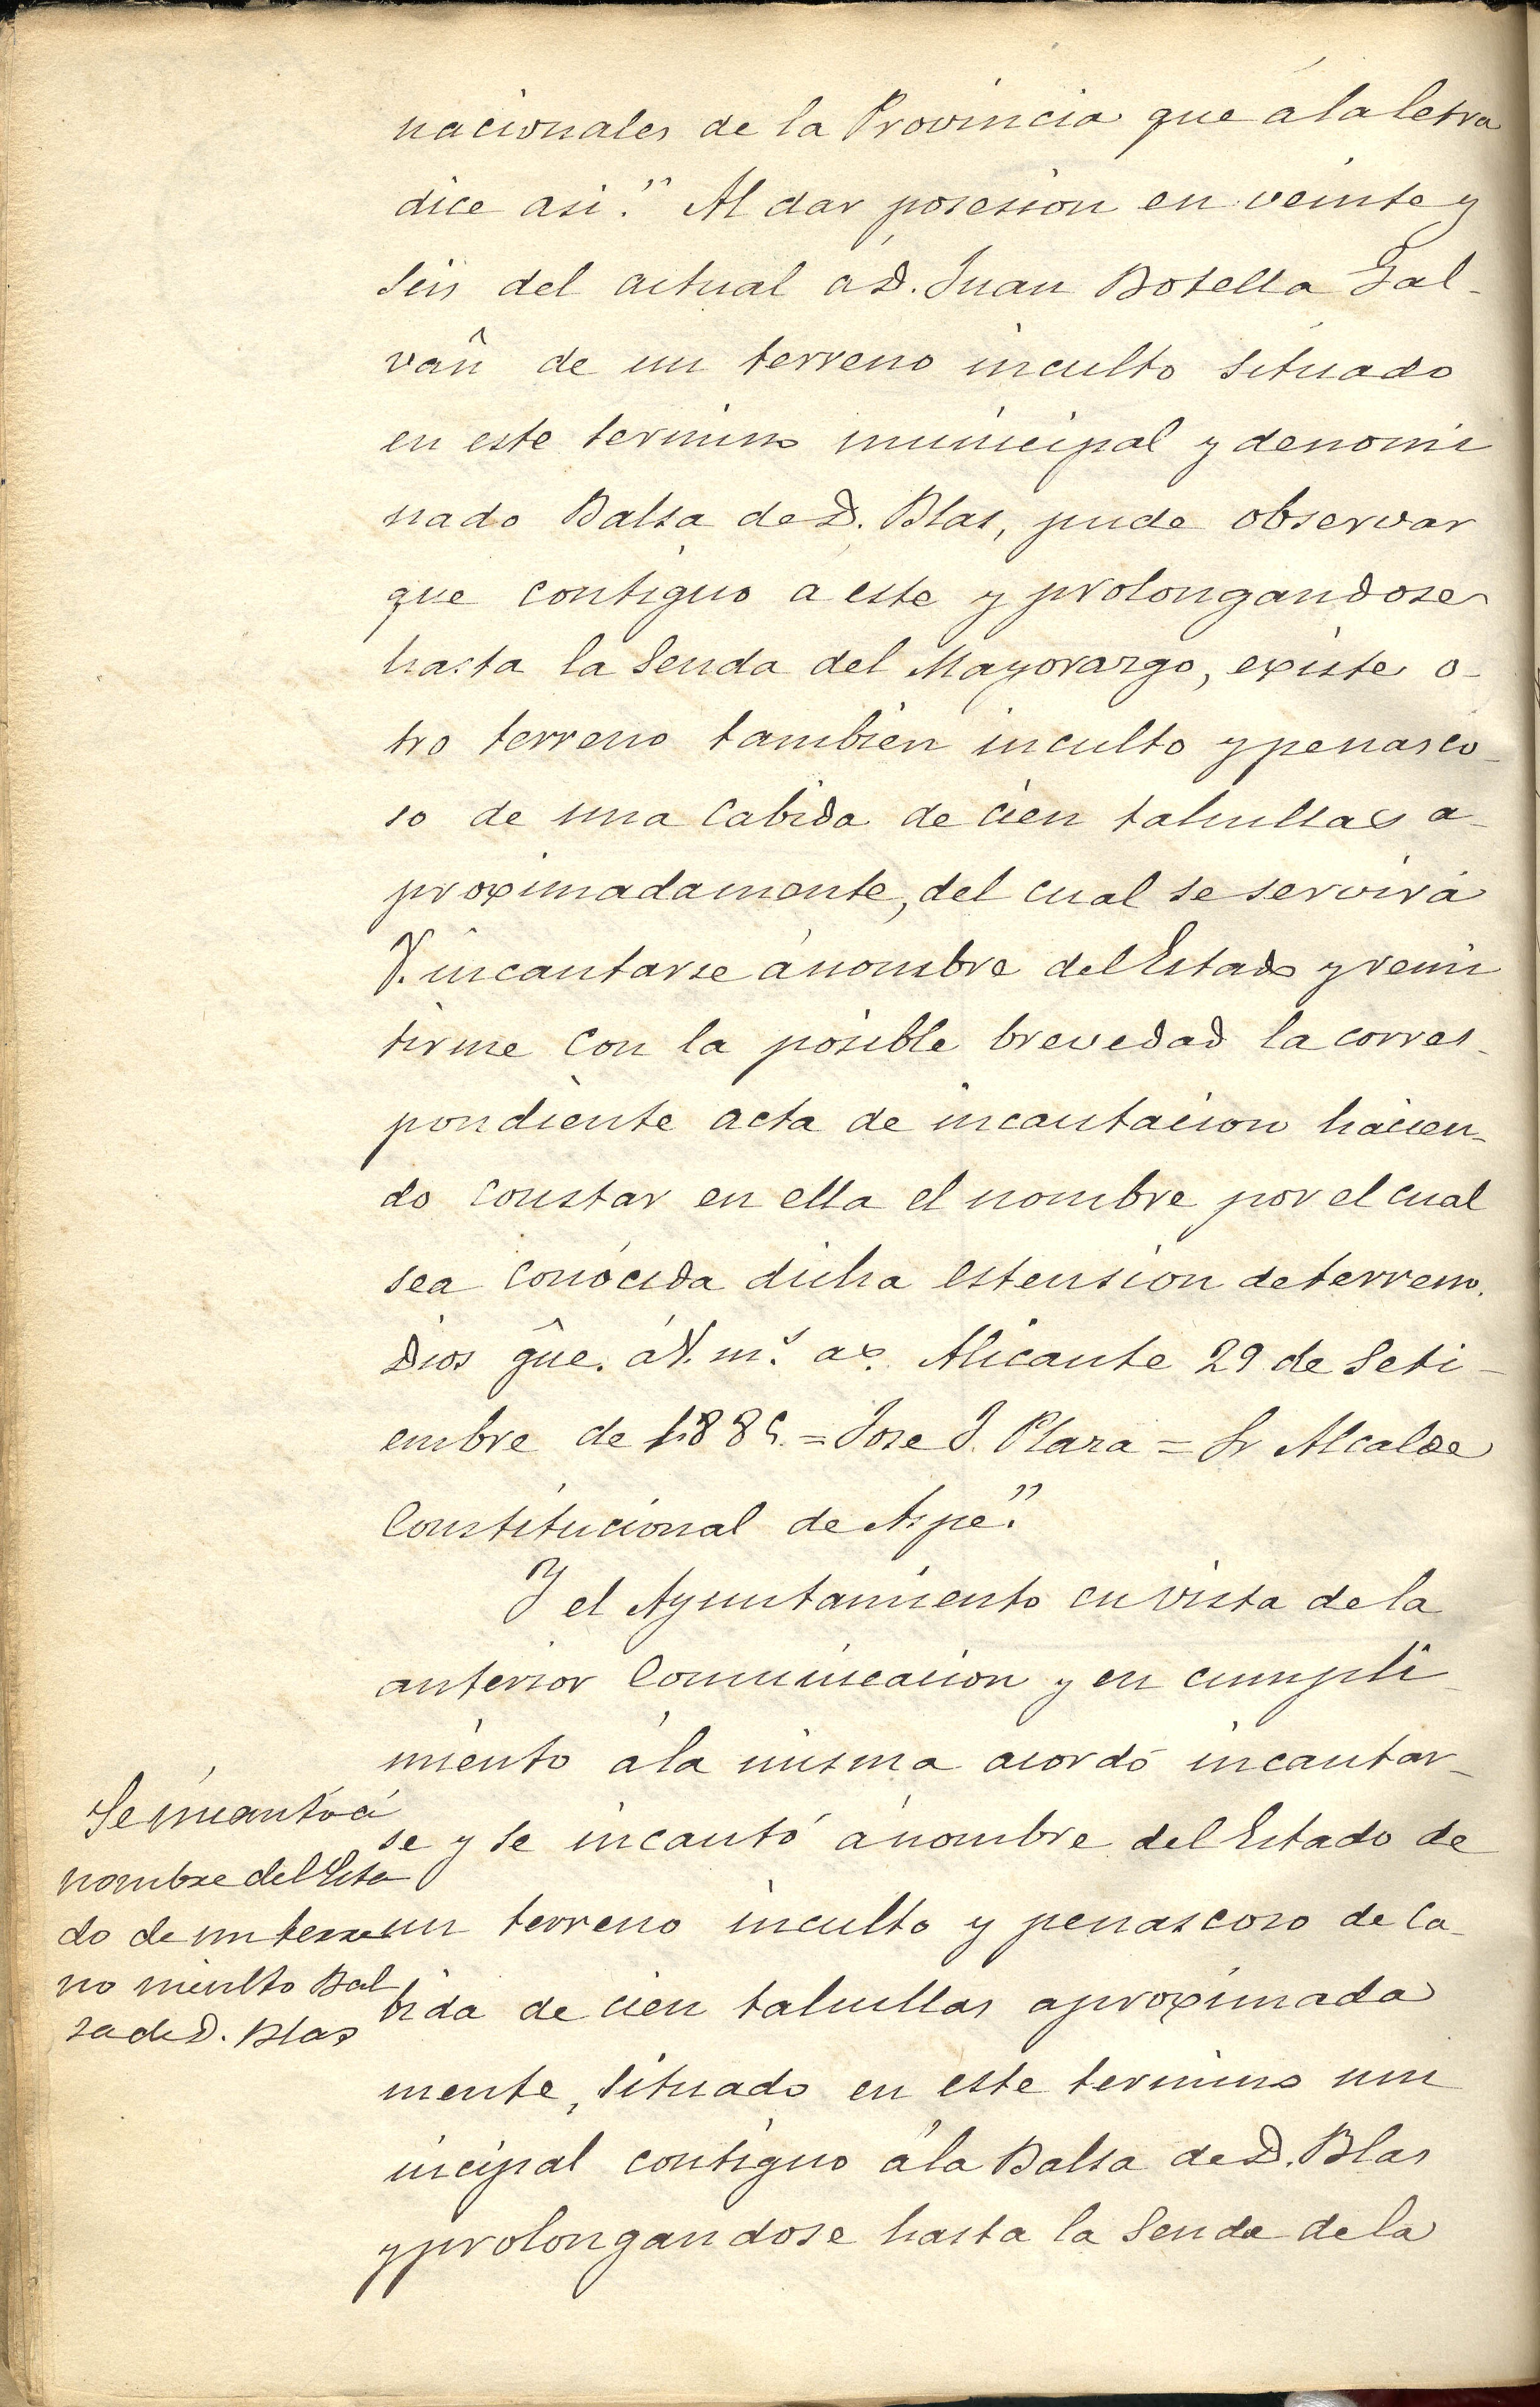 nacionales de la Provincia que á la letra
dice asi." Al dar posesion en veinte y
seis del actual a D. Juan Botella Gal-
vañ de un terreno inculto situado
en este termino municipal y denomi
nado Balsa de D. Blas, pude observar
que contiguo a este y prolongandose
hasta la Senda del Mayorazgo, existe o-
tro terreno tambien inculto y penasco-
so de una cabida de cien tahullas a-
proximadamente, del cual se servirá
V. incautarse á nombre del Estado y remi
tirme con la posible brevedad la corres-
pondiente acta de incautacion hacien-
do constar en ella el nombre por el cual
sea conocida dicha estension de terreno.
Dios gûe. á V. m.s a.s Alicante 29 de Seti-
embre de = Jose J. Plaza = Sr Alcalde
Constitucional de Aspe."
Y el Ayuntamiento en vista de la
anterior Comunicacion y en cumpli-
miento á la misma acordó incautar-
se y se incautó á nombre del Estado de
un terreno inculto y penascoso de ca-
bida de cien tahullas aproximada
mente, situado en este termino mu
nicipal contiguo á la Balsa de D. Blas
y prolongandose hasta la Senda de la
Se incautó á
nombre del Esta
do de un terre
no inculto Bal
sa de D. Blas